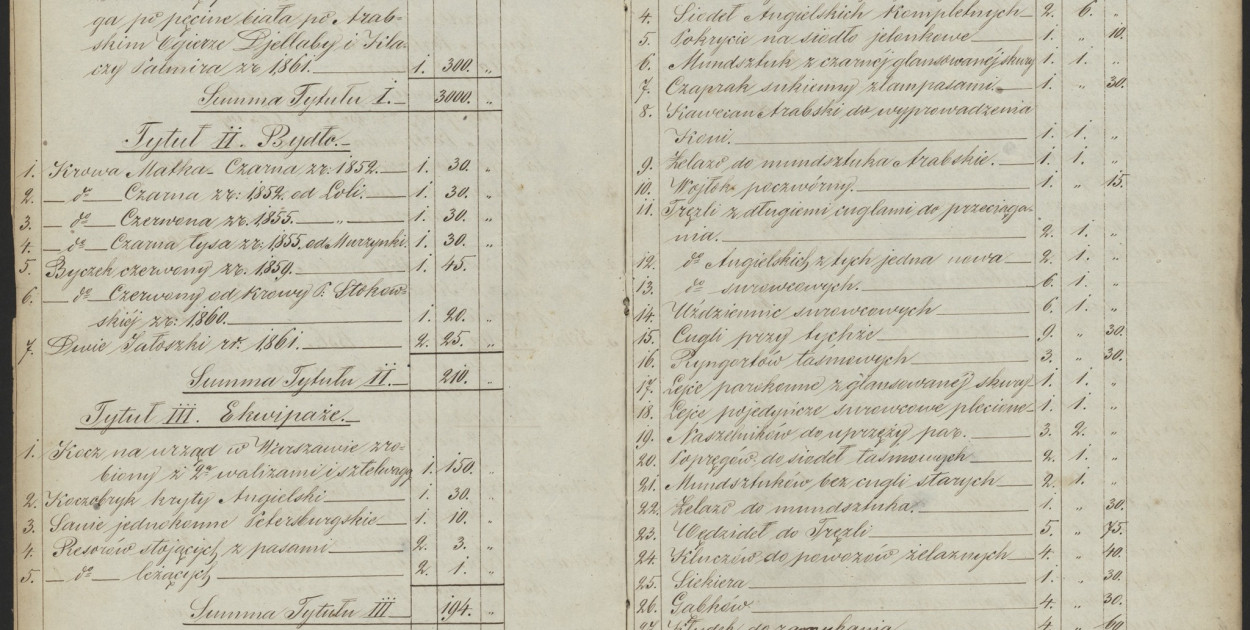 ga po pęcine biała po Arab-
skim Ogierze Djellaby i Kla-
czy Palmira zr 1861. 1. 300. "
Summa Tytułu I. 3000. "
Tytuł II. Bydło.
1. Krowa Matka Czarna zr: 1852. 1. 30. "
2. — do — Czarna zr: 1852. od Loli. 1. 30. "
3. — do — Czerwona zr. 1855. " 1. 30. "
4. — do — Czarna łysa zr: 1855. od Murzynki. 1. 30. "
5. Byczek czerwony zr. 1859. 1. 45.
6. — do — Czerwony od Krowy P. Stokow-
skiéj zr: 1860. 1. 20. "
7. Dwie Jałoszki zr. 1861. 2. 25. "
Summa Tytułu II. 210. "
Tytuł III. Ekwipaże.
1. Kocz na urząd w Warszawie zro-
biony z 2a walizami i sztelwagą 1. 150. "
2. Koczobryk kryty Angielski 1. 30. "
3. Sanie jednokonne Petersburgskie 1. 10. "
4. Resorów stojących z pasami 2. 3. "
5. — do — leżących 2. 1. "
Summa Tytułu III 194. "
4. Siodeł Angielskich Kompletnych 2. 6. "
5. Pokrycie na siodło jelonkowe 1. " 10.
6. Mundsztuk z czarnéj glansowanéj skury 1. 1. "
7. Czaprak sukienny z lampasami. 1. " 30.
8. Kawecan Arabski do wyprowadzenia
Koni. 1. 1. "
9. Żelazo do mundsztuka Arabskie. 1. 1. "
10. Wojłok poczwórny. 1. " 15.
11. Tręzli z długiemi cuglami do przeciąga-
nia. 2. 1. "
12. do Angielskich z tych jedna nowa 2. 1. "
13. do surowcowych. 6. 1. "
14. Uździennic surowcowych 6. 1. "
15. Cugli przy tychże 9. " 30.
16. Ryngortów taśmowych 3. " 30.
17. Lejce parokonne z glansowanéj skury 1. 1. "
18. Lejce pojedyńcze surowcowe plecione 1. 1. "
19. Naszelników do uprzęży par. 3. 2. "
20. Popręgów do siodeł taśmowych 2. 1. "
21. Mundsztuków bez cugli starych 2. 1. "
22. Żelazo do mundsztuka. 1. " 30.
23. Wędzideł do Tręzli 5. " 75.
24. Kluczów do powozów żelaznych 4. " 40.
25. Siekiera 1. " 30.
26. Gąbków 4. " 30.
27. Kłódek do zamykania 4. " 60.